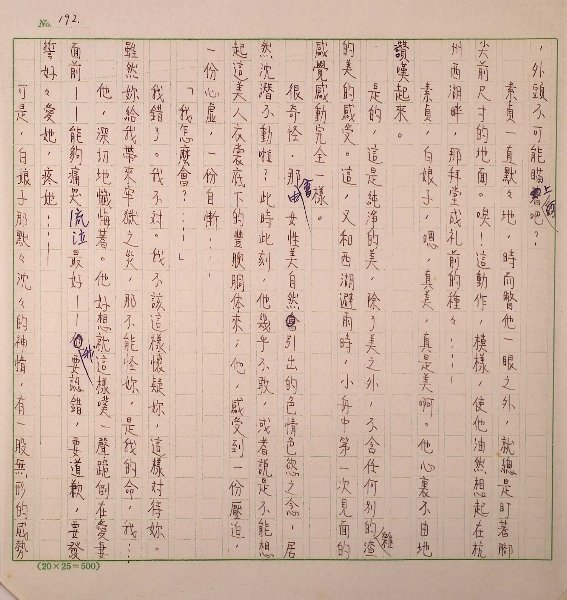 No. 192.
，外頭不可能瞄上鈎吧？
素貞一直默々地，時而瞥他一眼之外，就總是盯著腳
尖前尺寸的地面。唉！這動作，模樣，使他油然想起在杭
州西湖畔，那拜堂成礼前的種々……
素貞，白娘子，嗯，真美，真是美啊。他心裏不由地
讚嘆起來。
是的，這是純淨的美，除了美之外，不含任何別的雜渣
的美的感受。這，又和西湖避雨時，小舟中第一次見面的
感覺感動完全一樣。
很奇怪，那會由女性美自然引出的色情色慾之念，居
然沈潛不動啦？此時此刻，他幾乎不敢，或者說是不能想
起這美人衣裳底下的豐腴胴体來，他，感受到一份壓迫，
一份心虛，一份自慚……
「我怎麼會？……」
我錯了。我不対。我不該這樣懷疑妳，這樣対待妳。
雖然妳給我帶來牢獄之災，那不能怪妳，是我的命，我…
他，深切地懺悔著。他好想就這樣噗一聲跪倒在愛妻
面前——能夠痛是流泣最好——我要認錯，要道歉，要發
誓好々愛她，疼她……
可是，白娘子那默々沈々的神情，有一股無形的威勢
(20×25=500)